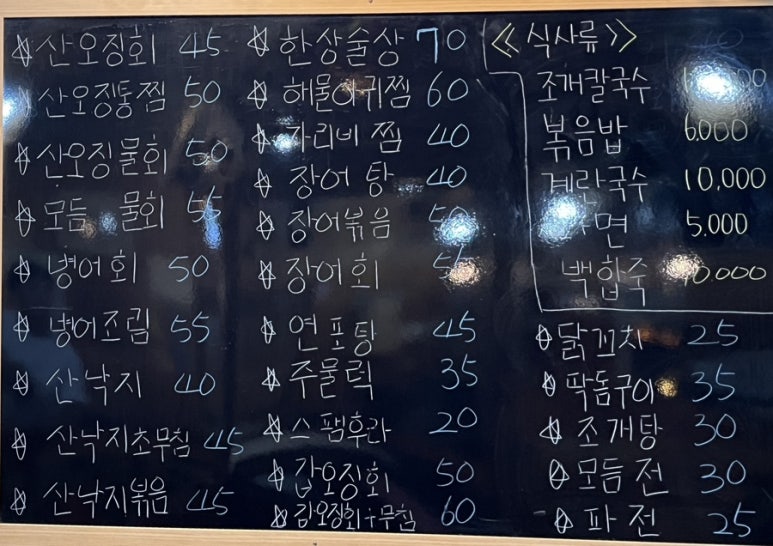 ☆ 산오징회 45
산오징통찜 50
☆ 산오징물회 50
☆ 모듬 물회 55
☆ 병어회 50
☆ 병어조림 55
☆ 산낙지 40
☆ 산낙지초무침 45
☆ 산낙지볶음 45
☆ 한상술상 70
☆ 해물아귀찜 60
☆ 가리비 찜 40
☆ 장어 탕 40
☆ 장어볶음 50
☆ 장어회 55
☆ 연포탕 45
☆ 주물럭 35
☆ 스팸후라 20
☆ 갑오징회 50
☆ 갑오징회무침 60
≪ 식사류 ≫
조개칼국수
볶음밥 6,000
계란국수 10,000
면 5,000
백합죽 10,000
☆ 닭꼬치 25
☆ 딱돔구이 35
☆ 조개탕 30
☆ 모듬전 30
☆ 파전 25